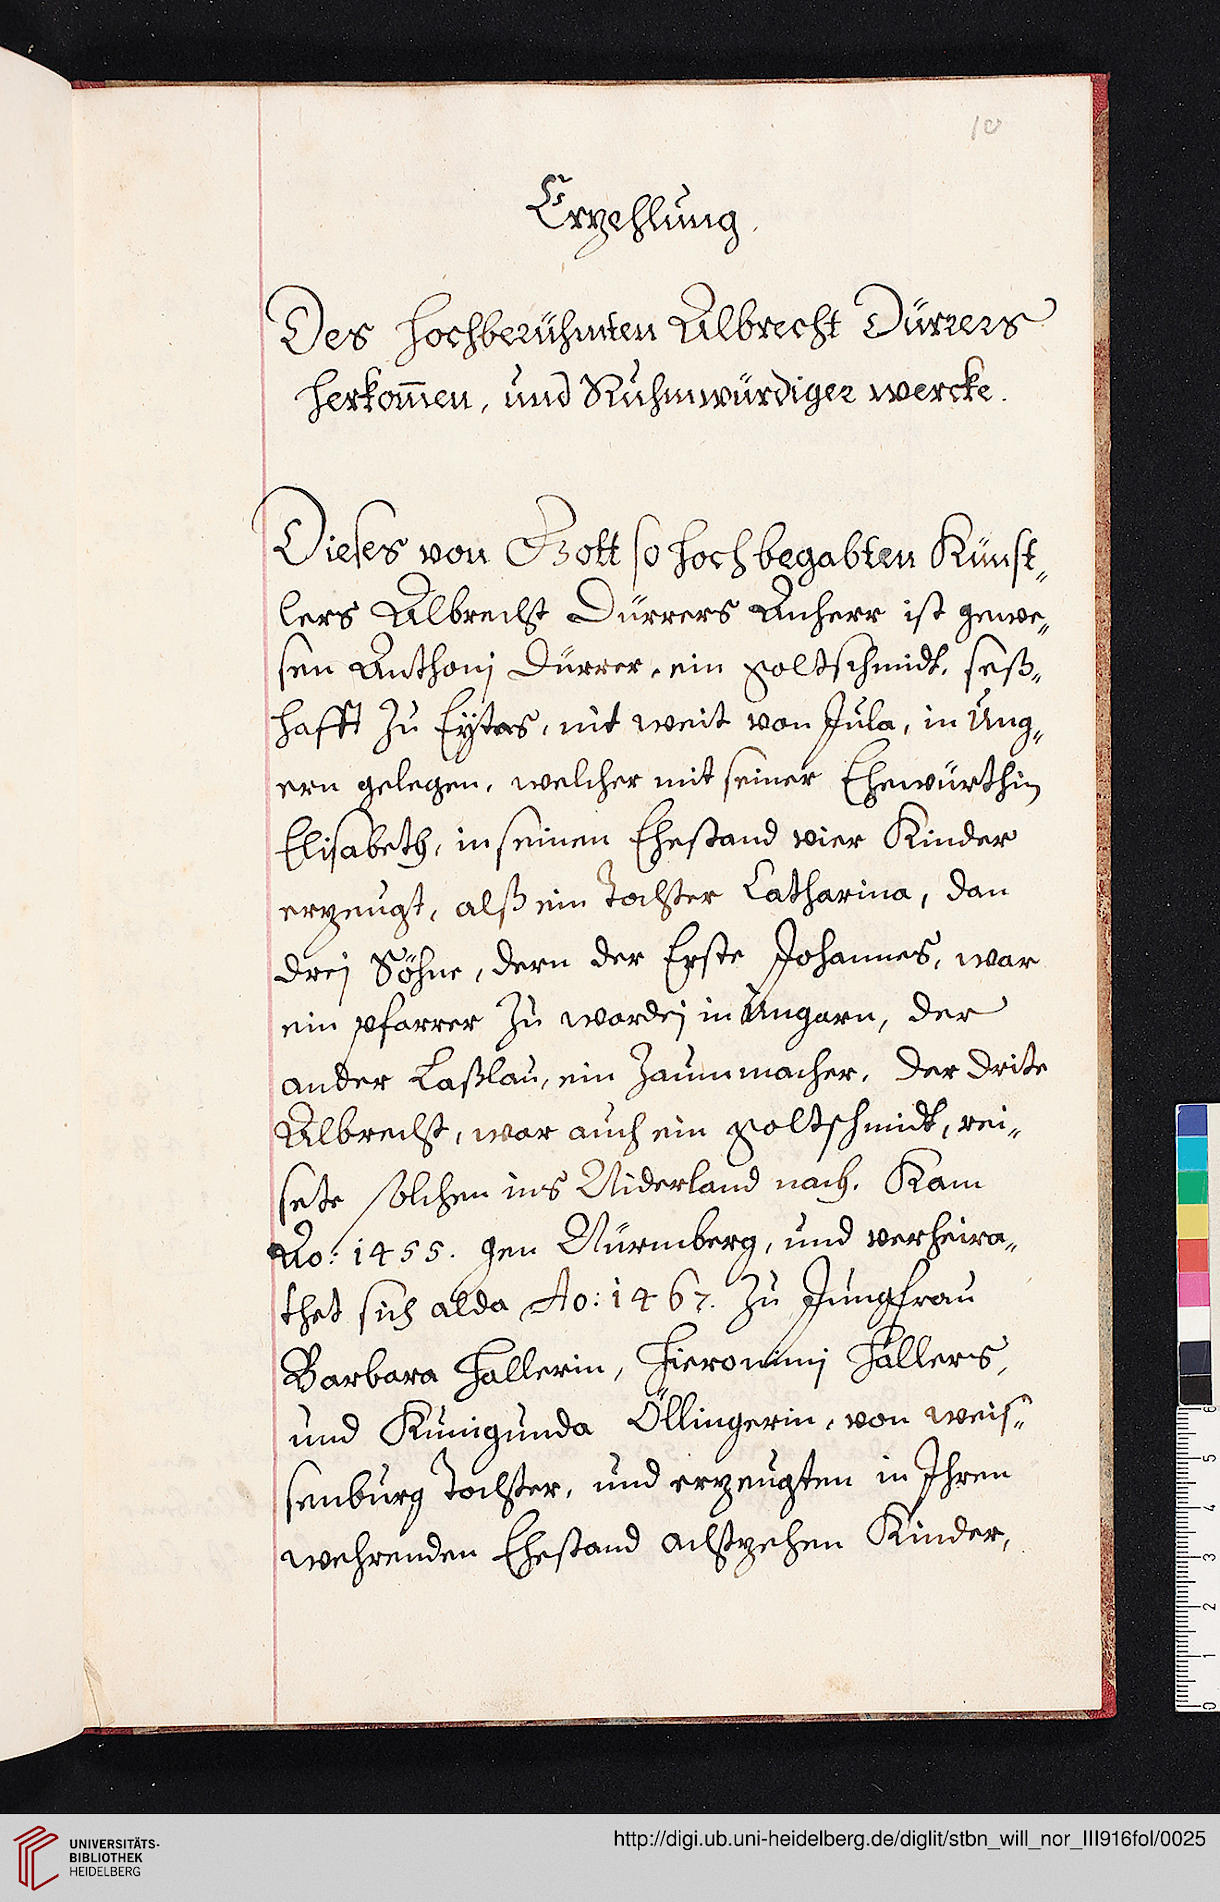 10
Erzehlung.
Des hochberühmten Albrecht Dürrers
herkom̄en, und Ruhmwürdiger wercke.
Dieses von Gott so hoch begabten Künst„
lers Albrecht Dürrers Anherr ist gewe„
sen Anthonj Dürrer, ein goltschmidt, seß„
hafft zu Eytas, nit weit von Jula, in Ung„
ern gelegen, welcher mit seiner Ehewürthin
Elisabeth, in seinen Ehestand vier Kinder
erzeugt, alß ein Tochter Catharina, dan
drej Söhne, dern der Erste Johannes, war
ein pfarrer zu wardej in Ungarn, der
ander Laßlau, ein Zaummacher, der drite
Albrecht, war auch ein goltschmidt, rei„
sete solchen ins Niderland nach. Kam
Ao: 1455. gen Nürmberg, und verheira„
thet sich alda Ao: 1467. zu Jungfrau
Barbara Hallerin, Hieronimj Hallers,
und Kunigunda Öllingerin, von weis„
senburg Tochter, und erzeugten in Ihren
wehrenden Ehestand achtzehen Kinder,
UNIVERSITÄTS-
BIBLIOTHEK
HEIDELBERG
http://digi.ub.uni-heidelberg.de/diglit/stbn_will_nor_III916fol/0025
6
5
4
3
2
1
0